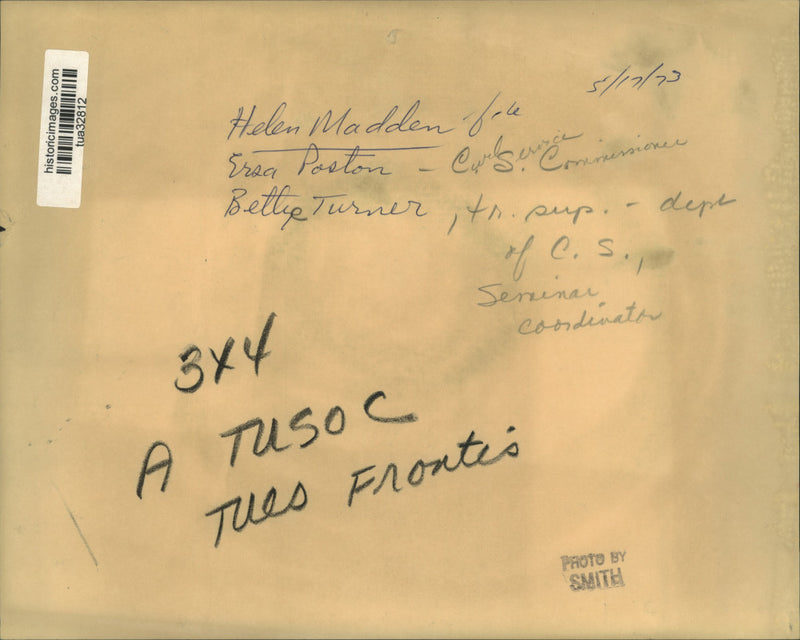 historicimages.com
tua32812
5/17/73
Helen Madden file
Ersa Poston - Civil Service Commissioner
Bettye Turner, tr. sup. - dept
of C. S.,
Seminar
coordinator
3x4
A TUSOC
TUES FRONTIS
PHOTO BY
SMITH